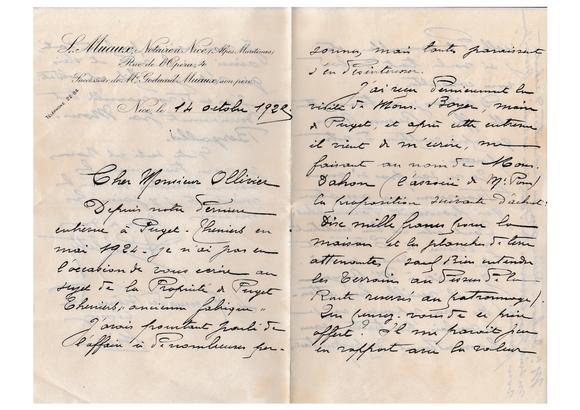 L. Muaux, Notaire à Nice, Alpes Maritimes
Rue de l'Opéra, 4
Successeur de Me Godard Muaux, son père
TÉLÉPHONE 22-84
Nice, le 14 octobre 1922
Cher Monsieur Ollivier
Depuis notre dernière
entrevue à Puget-Theniers en
mai 1921 je n'ai pas eu
l'occasion de vous écrire au
sujet de la Propriété de Puget
Theniers "ancienne fabrique"
J'avais pourtant parlé de
l'affaire à de nombreuses per-
sonnes, mais toutes paraissent
s'en désintéresser.
J'ai reçu dernièrement la
visite de Mons. Boyer, maire
de Puget, et après cette entrevue
il vient de m'écrire, me
faisant au nom de Mons.
Dahon (l'associé de Mr Pons)
la proposition suivante d'achat:
Dix mille francs pour la
maison et la planche de terre
attenante (sauf bien entendu
les terrains au dessus de la
Route réservés au patronnage).
Que pensez-vous de ce prix
offert? Il me paraît peu
en rapport avec la valeur